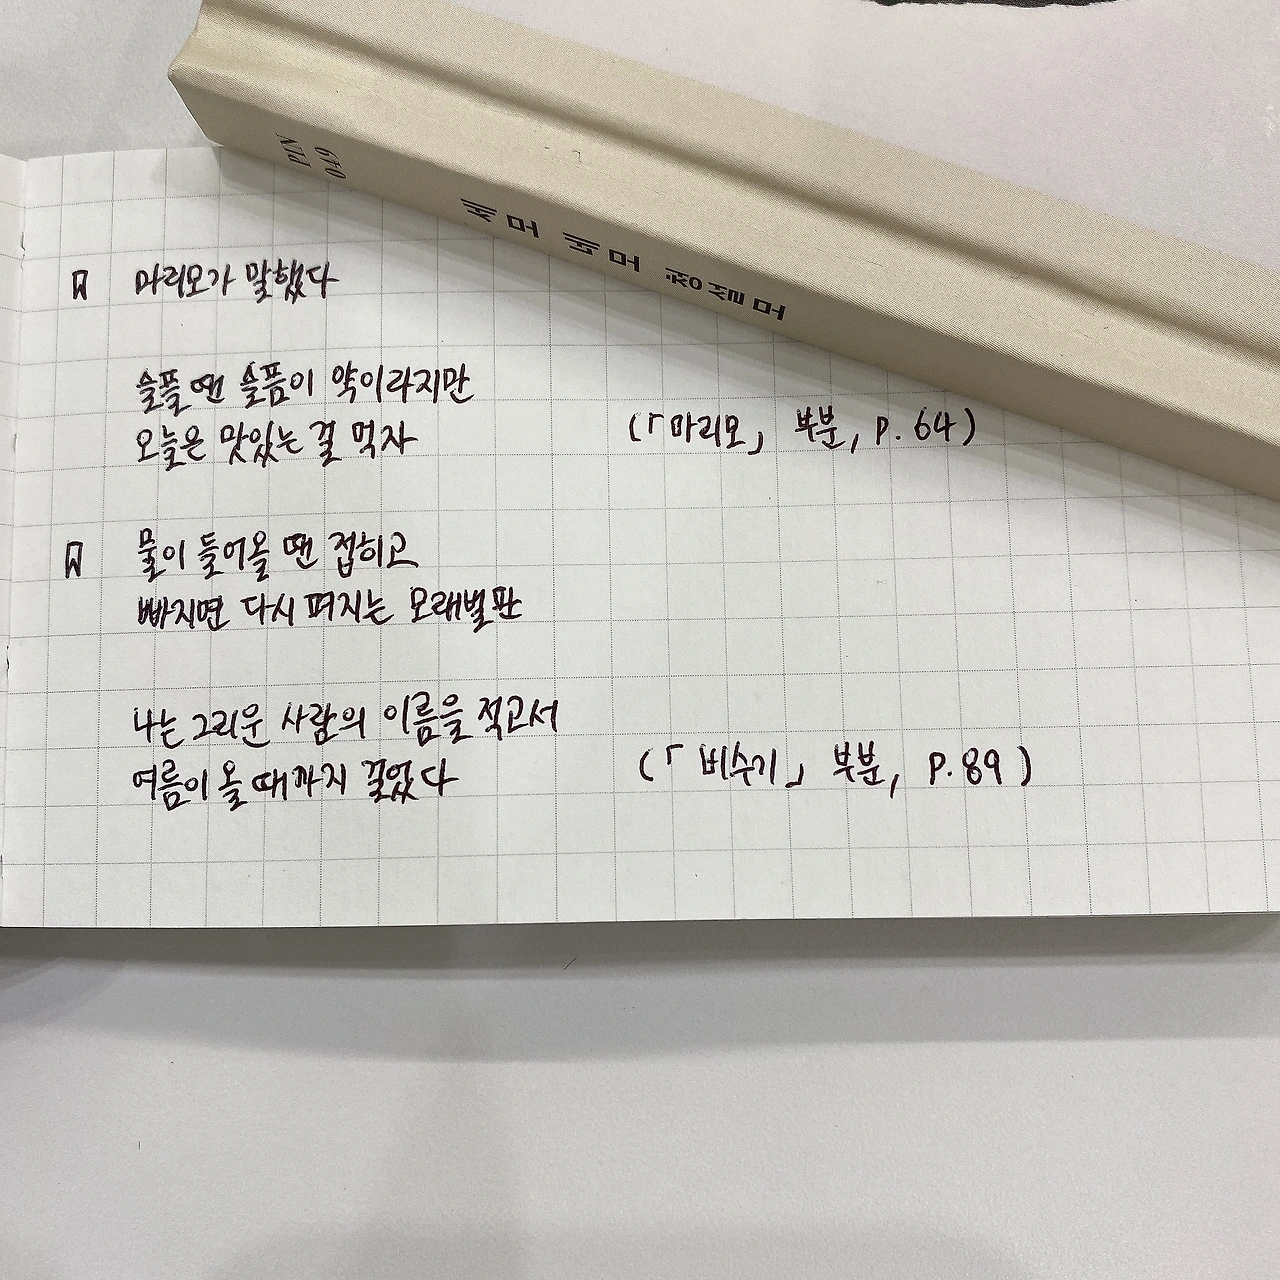 PIN
049
세모 네모 청설모
마리모가 말했다
슬플 땐 슬픔이 약이라지만
오늘은 맛있는 걸 먹자
(「마리모」 부분, p. 64)
물이 들어올 땐 접히고
빠지면 다시 펴지는 모래벌판
나는 그리운 사람의 이름을 적고서
여름이 올 때까지 걸었다
(「비수기」 부분, p. 89)